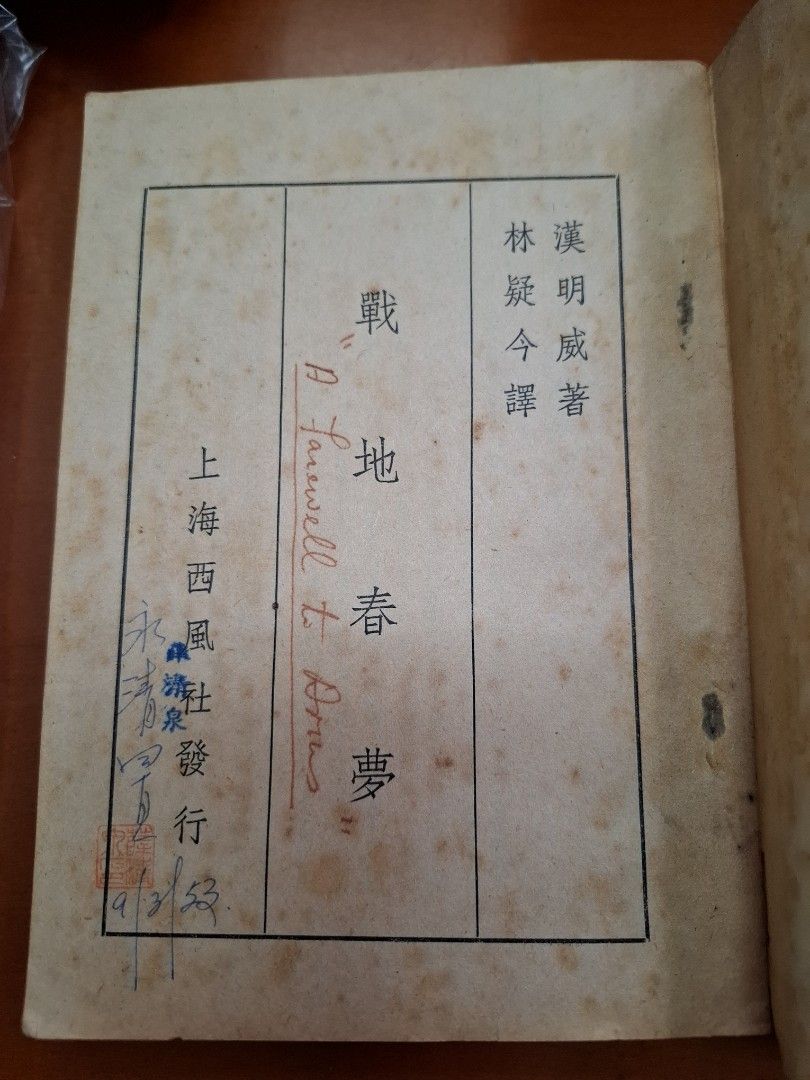 漢明威著
林疑今譯
戰地春夢
"A Farewell to Arms"
上海西風社發行
清泉
永清